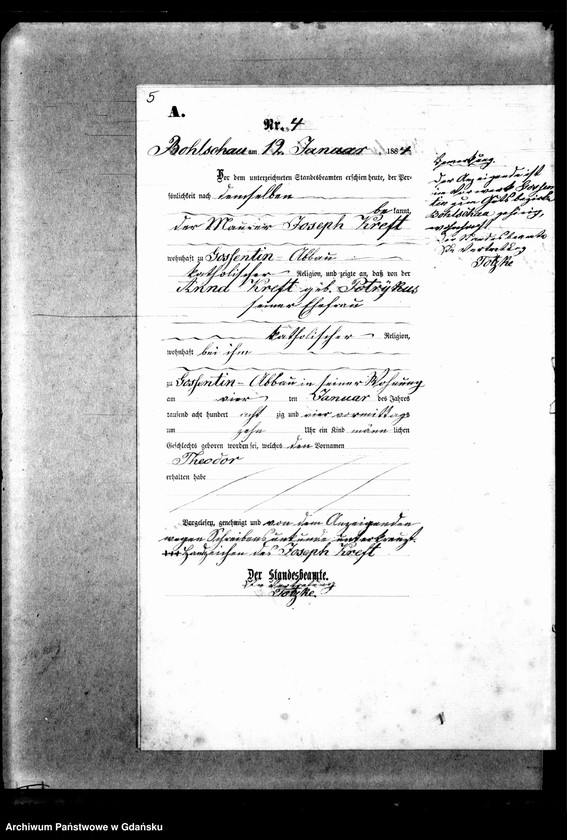 5
A.
Nr. 4
Bohlschau am 12 Januar 1884.
Vor dem unterzeichneten Standesbeamten erschien heute, der Per-
sönlichkeit nach demselben
be kannt,
der Maurer Joseph Kreft
wohnhaft zu Gossentin - Abbau
katholischer Religion, und zeigte an, daß von der
Anna Kreft geb. Potrykus
seiner Ehefrau
katholischer Religion,
wohnhaft bei ihm
zu Gossentin - Abbau in seiner Wohnung
am vier ten Januar des Jahres
tausend acht hundert acht zig und vier vormittags
um zehn Uhr ein Kind männ lichen
Geschlechts geboren worden sei, welches den Vornamen
Theodor
erhalten habe
Vorgelesen, genehmigt und von dem Anzeigenden
wegen Schreibensunkunde unterkreuzt.
+++ Handzeichen des Joseph Kreft
Der Standesbeamte.
In Vertretung
Totzke
Bemerkung.
Der Anzeigende ist
im Vorwerk Gossen
tin zum Gutsbezirke
Bohlschau gehörig,
wohnhaft
Der Standesbeamte
In Vertretung
Totzke
Archiwum Państwowe w Gdańsku